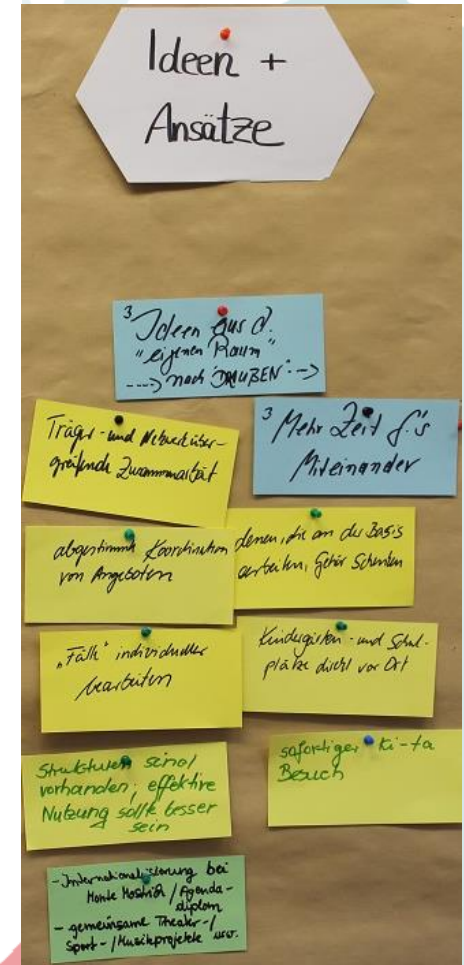 Ideen +
Ansätze
3
Ideen aus d.
"eigenen Raum"
---> nach "DRAUßEN" -->
3
Mehr Zeit f.'s
Miteinander
Träger- und Netzwerküber-
greifende Zusammenarbeit
abgestimmte Koordination
von Angeboten
denen, die an der Basis
arbeiten, Gehör schenken
„Fälle" individueller
bearbeiten
Kindergarten- und Schul-
plätze direkt vor Ort
Strukturen sind
vorhanden; effektive
Nutzung sollte besser
sein
sofortiger Ki-ta
Besuch
- Internationalisierung bei
Monte / Agenda-
diplom
- gemeinsame Theater-/
Sport-/Musikprojekte usw.